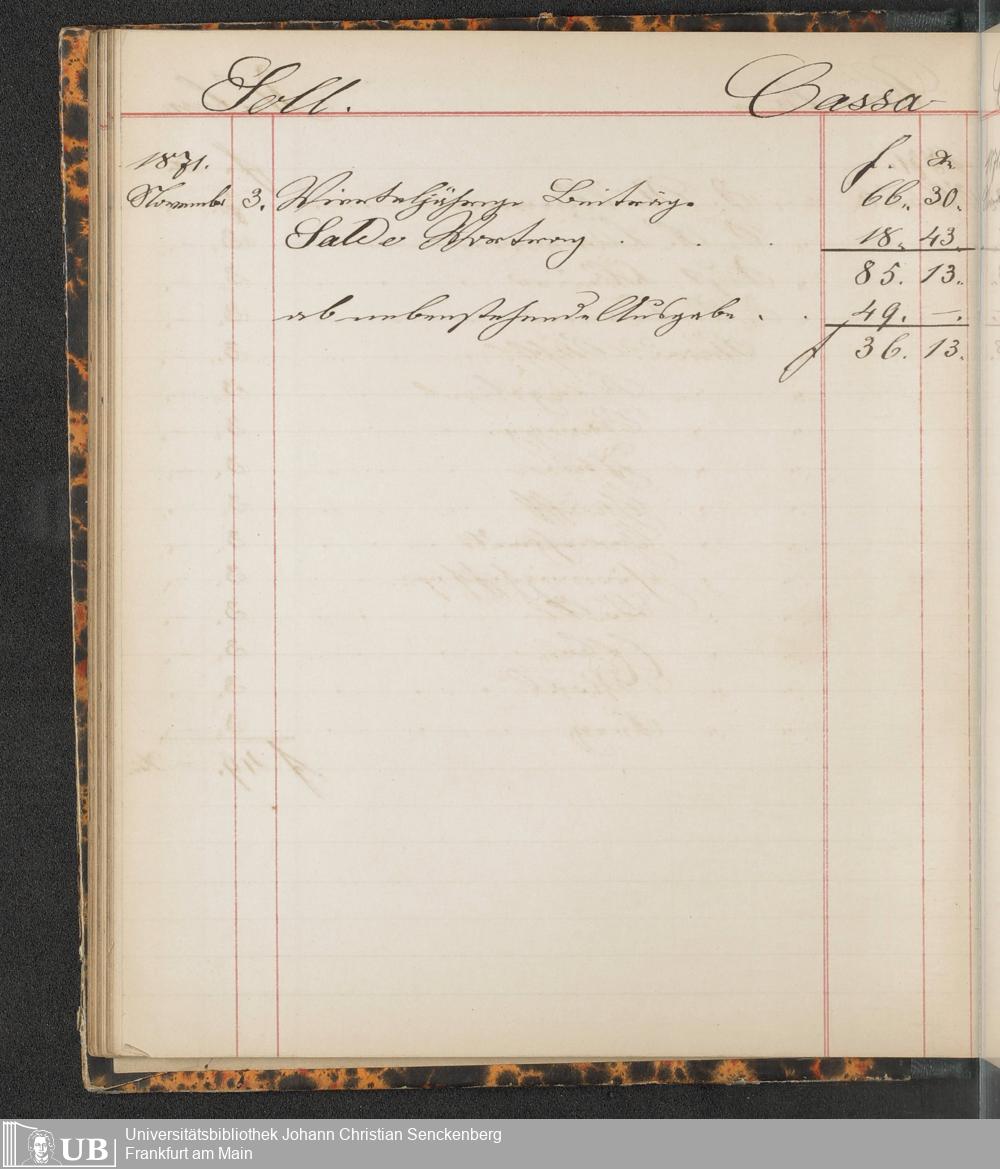 Soll. Cassa
1871. f. xr
Novemb. 3. Vierteljährige Beiträge 66. 30.
Saldo Vortrag . . . 18. 43.
85. 13.
ab nebenstehende Ausgabe . . 49. —.
f 36. 13.
UB Universitätsbibliothek Johann Christian Senckenberg
Frankfurt am Main